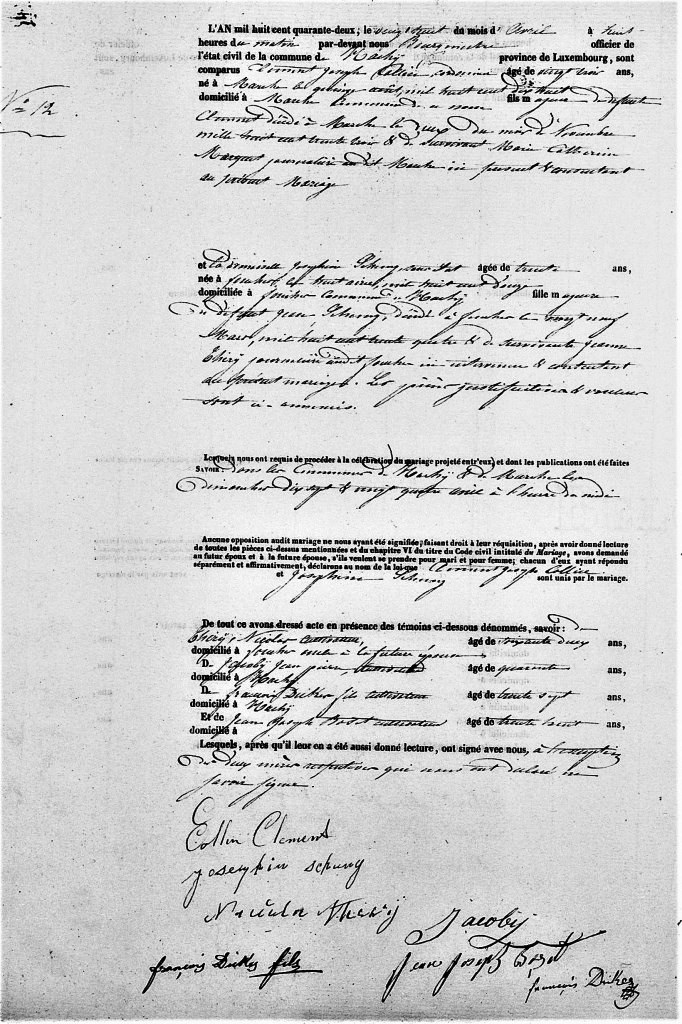 N° 12
L'AN mil huit cent quarante-deux, le du mois d'Avril à huit
heures du matin par-devant nous Bourgmestre officier de
l'état civil de la commune de Hachy province de Luxembourg, sont
comparus Clement Joseph Collin, âgé de vingt trois ans,
né à Marche le quinze août, mil huit cent dix huit
domicilié à Marche commune du nom fils majeur de défunt
Clement décédé à Marche le deux du mois de Novembre
mille huit cent trente trois & de survivant Marie Catherine
Marquet journalière audit Marche ici présent & consentant
au présent Mariage
et la demoiselle Josephin Schung, âgée de trente ans,
née à fouches, le huit cent douze
domiciliée à fouches commune de Hachy fille majeure
du défunt Jean Schung, décédé à fouches le vingt neuf
Mars, mil huit cent trente quatre & de survivante jeanne
Thery journalière audit fouches ici intervenue & consentant
au présent mariage. Les pièces justificatives
sont ci-annexées.
Lesquels nous ont requis de procéder à la célébration du mariage projeté entr'eux, et dont les publications ont été faites
SAVOIR: dans les Communes de Hachy & de Marche les
dimanches dix sept & vingt quatre avril à l'heure de midi
Aucune opposition audit mariage ne nous ayant été signifiée, faisant droit à leur réquisition, après avoir donné lecture
de toutes les pièces ci-dessus mentionnées et du chapitre VI du titre du Code civil intitulé du Mariage, avons demandé
au futur époux et à la future épouse, s'ils veulent se prendre pour mari et pour femme; chacun d'eux ayant répondu
séparément et affirmativement, déclarons au nom de la loi que Clement Joseph Collin
et Josephine Schung sont unis par le mariage.
De tout ce avons dressé acte en présence des témoins ci-dessous dénommés, savoir: de
Thery, Nicolas cultivateur, âgé de soixante deux ans,
domicilié à fouches oncle à la future épouse
D. Jacoby Jean pierre, âgé de quarante ans,
domicilié à Hachy
D. françois Dicker fils cultivateur âgé de trente sept ans,
domicilié à Hachy
Et de Jean Joseph cultivateur âgé de trente huit ans,
domicilié à
Lesquels, après qu'il leur en a été aussi donné lecture, ont signé avec nous, à l'exception
des deux mères respectives qui nous ont déclaré ne
savoir signer.
Collin Clement
Josephin schung
Nicolas Thery
Jacoby
françois Dicker fils
Jean Joseph
françois Dicker